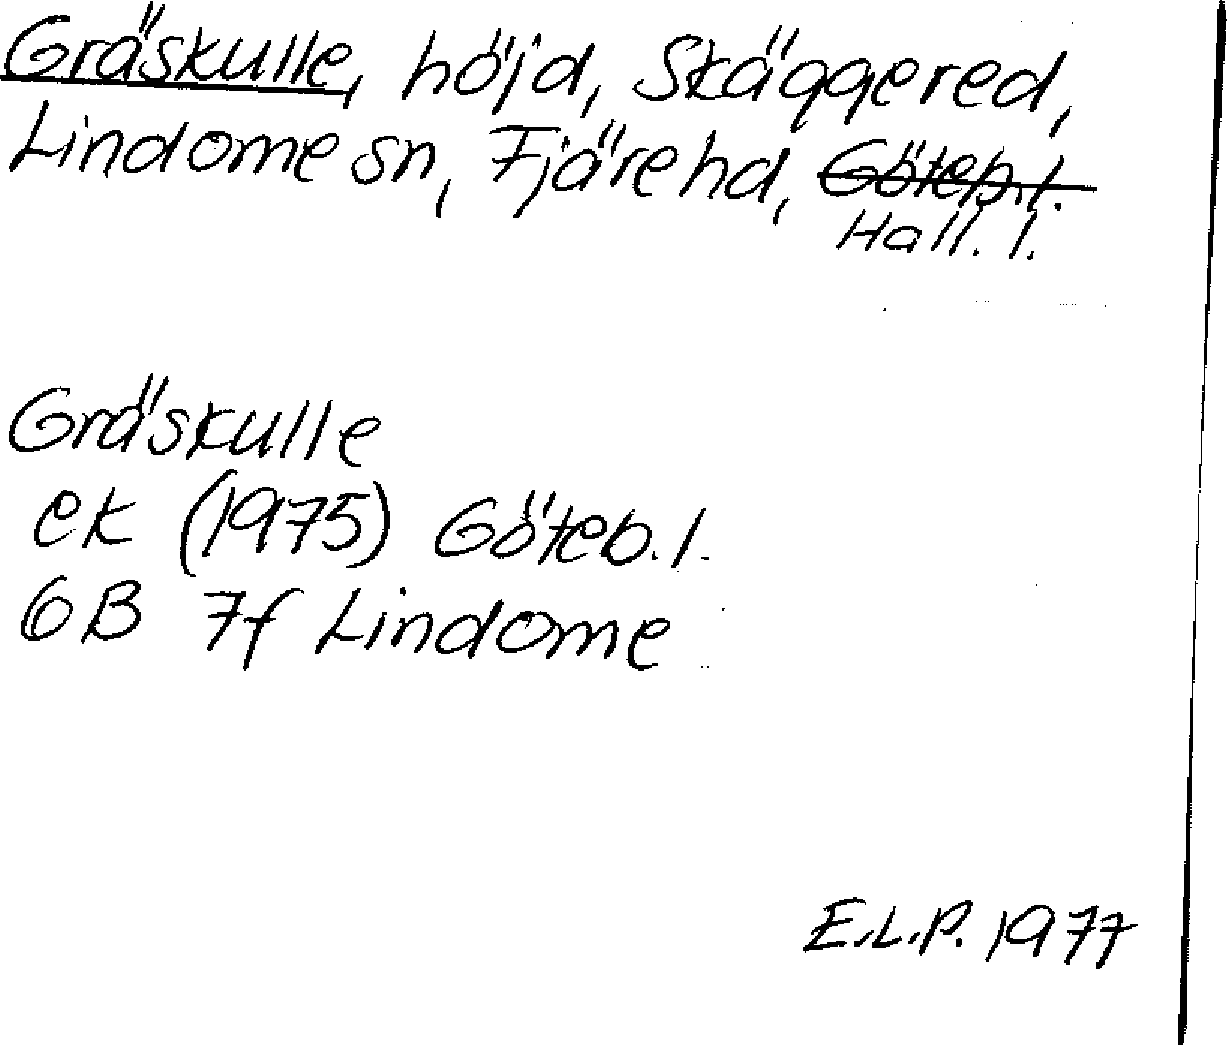 Gräskulle, höjd, Skäggered,
Lindome sn, Fjäre hd, Göteb. l.
Hall. l.
Gräskulle
ek (1975) Göteb. l.
6B 7f Lindome
E.L.P. 1977